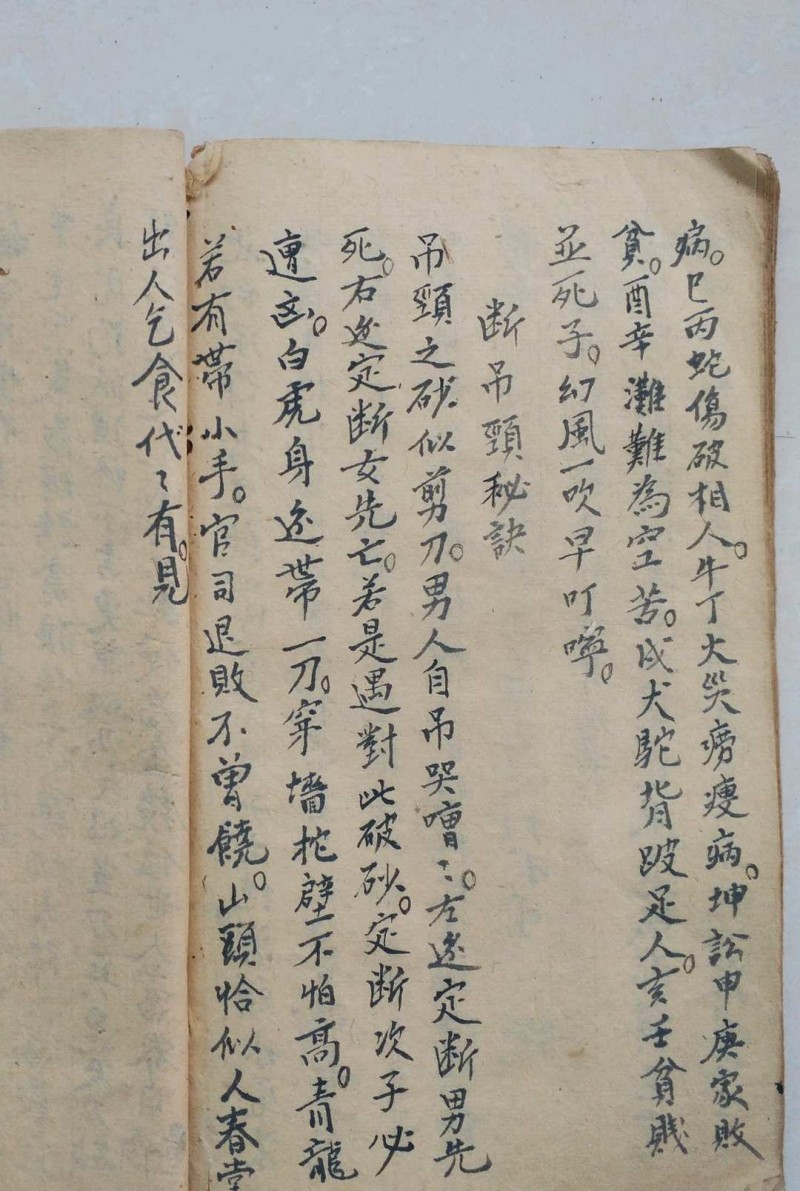 病。巳丙蛇傷破相人。牛丁火災癆瘦病。坤訟申庚家敗
貧。酉辛灘難為空苦。戌犬駝背跛足人。亥壬貧賤
並死子。幻風一吹早叮嚀。
断吊頸秘訣
吊頸之砂似剪刀。男人自吊哭嘈〻。左边定断男先
死。右边定断女先亡。若是遇對此破砂。定断次子必
遭凶。白虎身边帶一刀。穿墻挖壁不怕高。青龍
若有帶小手。官司退敗不曾饒。山頭恰似人舂堂
出人乞食代〻有。見